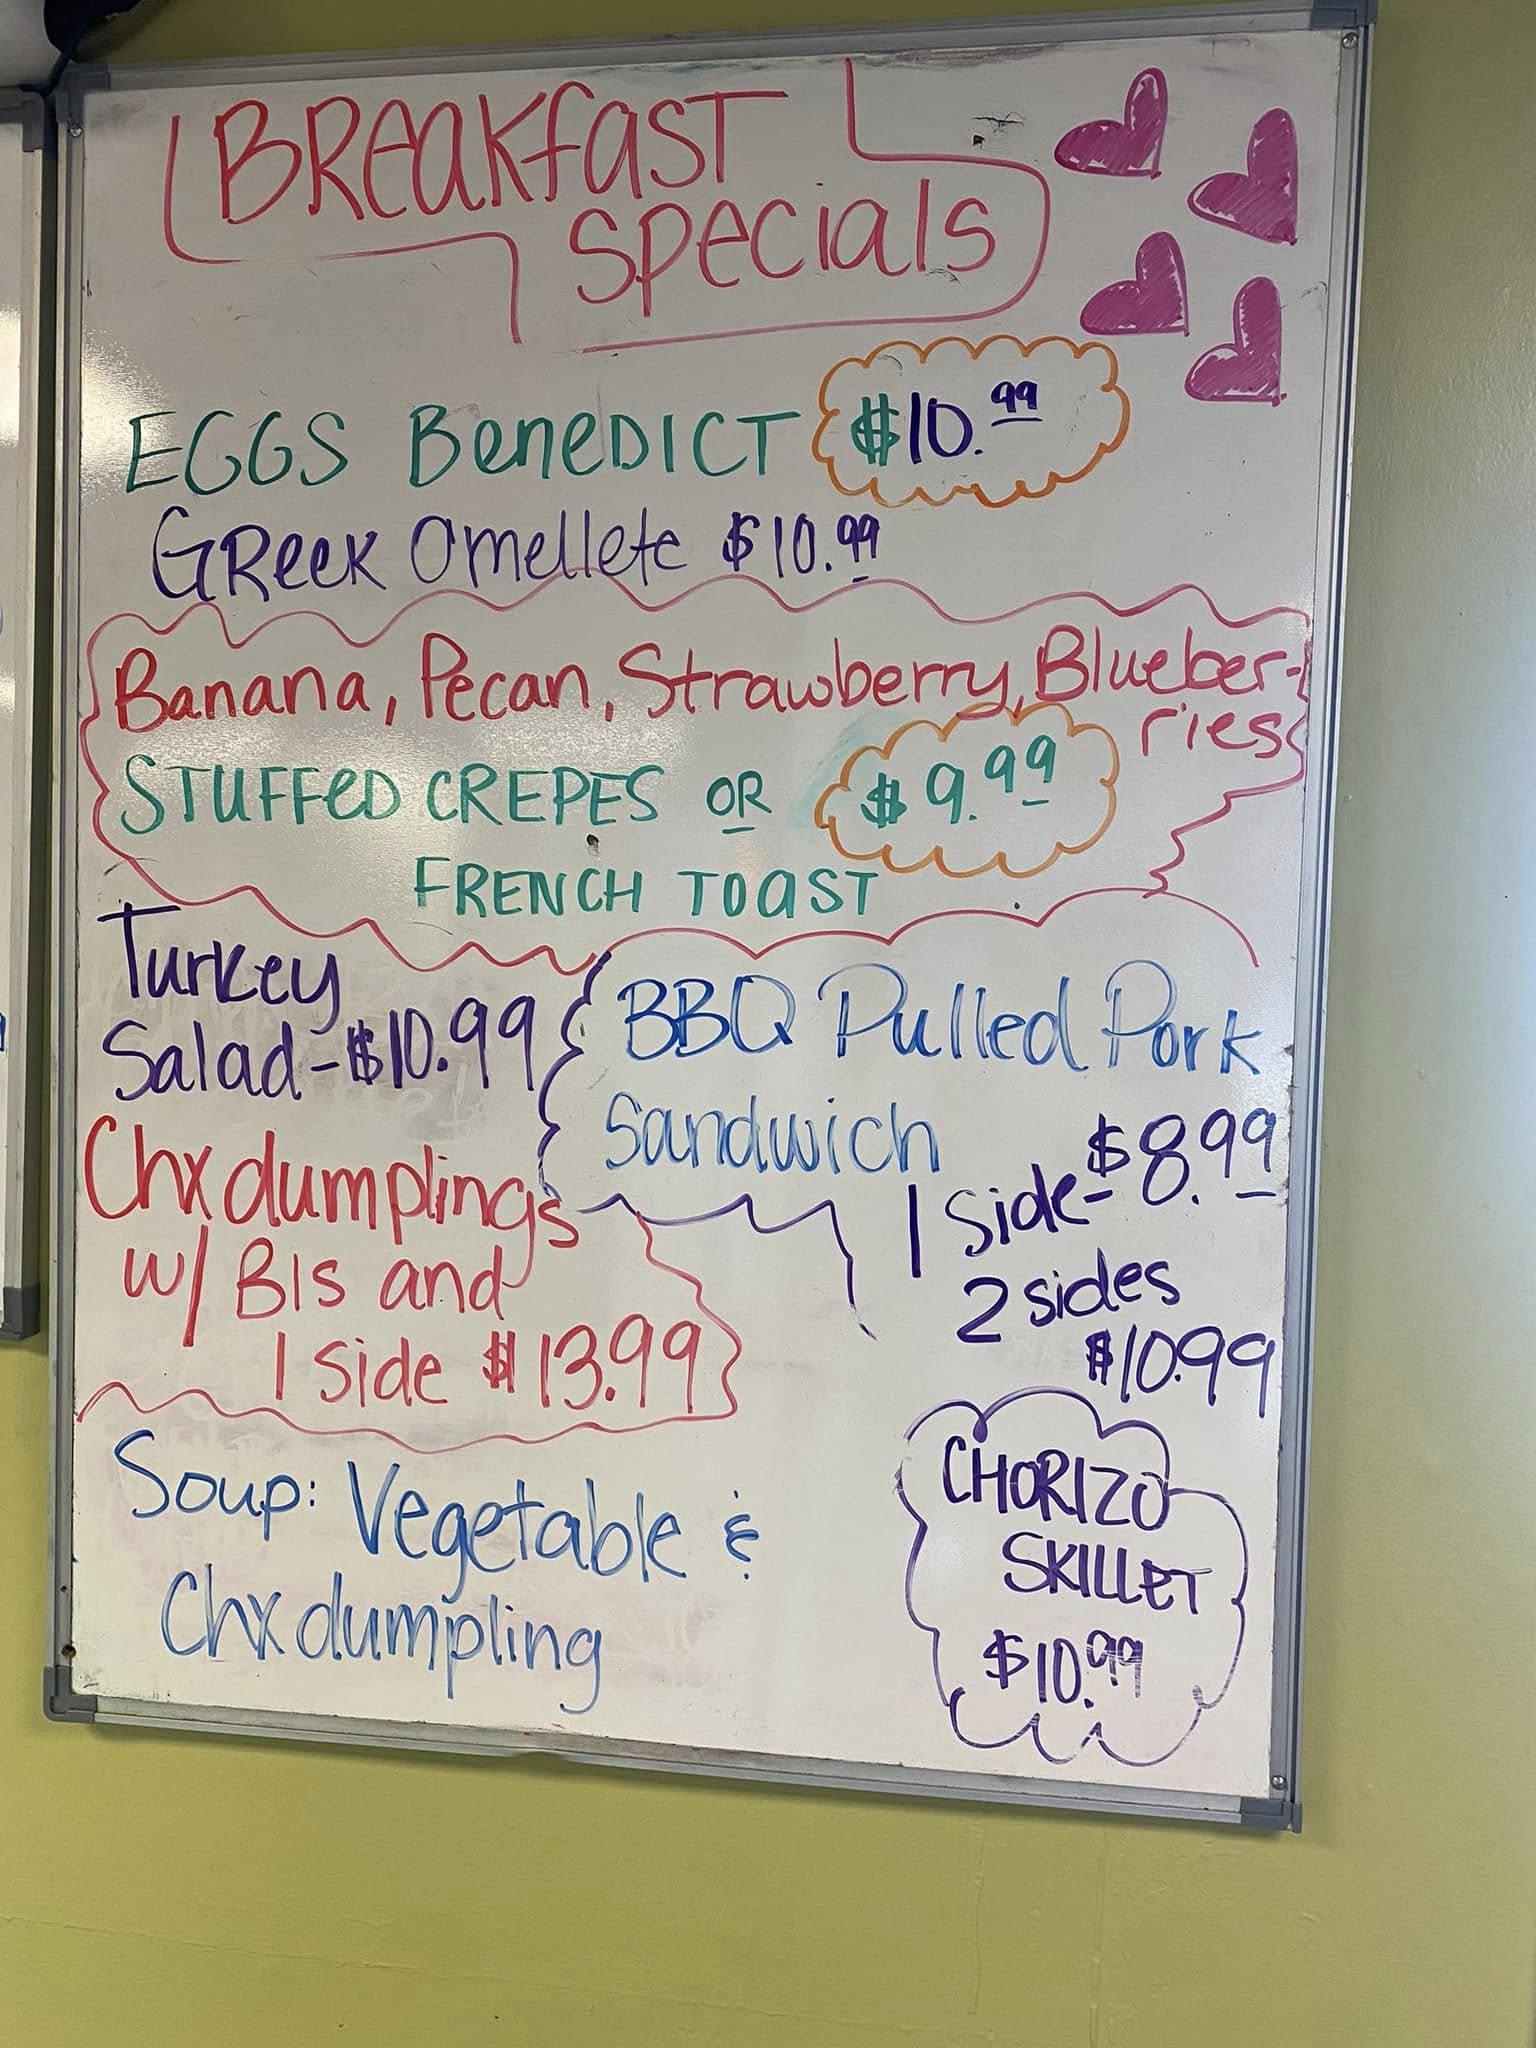 BREAKfAST
SPECIALS
EGGS BeneDICT $10.99
GReek Omellete $10.99
Banana, Pecan, Strawberry, Blueber-
ries
STUFFED CREPES OR $9.99
FRENCH TOAST
Turkey
Salad-$10.99
Chx dumplings
w/ BIs and
1 side $13.99
BBQ Pulled Pork
Sandwich
1 side-$8.99
2 sides
$10.99
Soup: Vegetable &
Chx dumpling
CHORIZO
SKILLET
$10.99